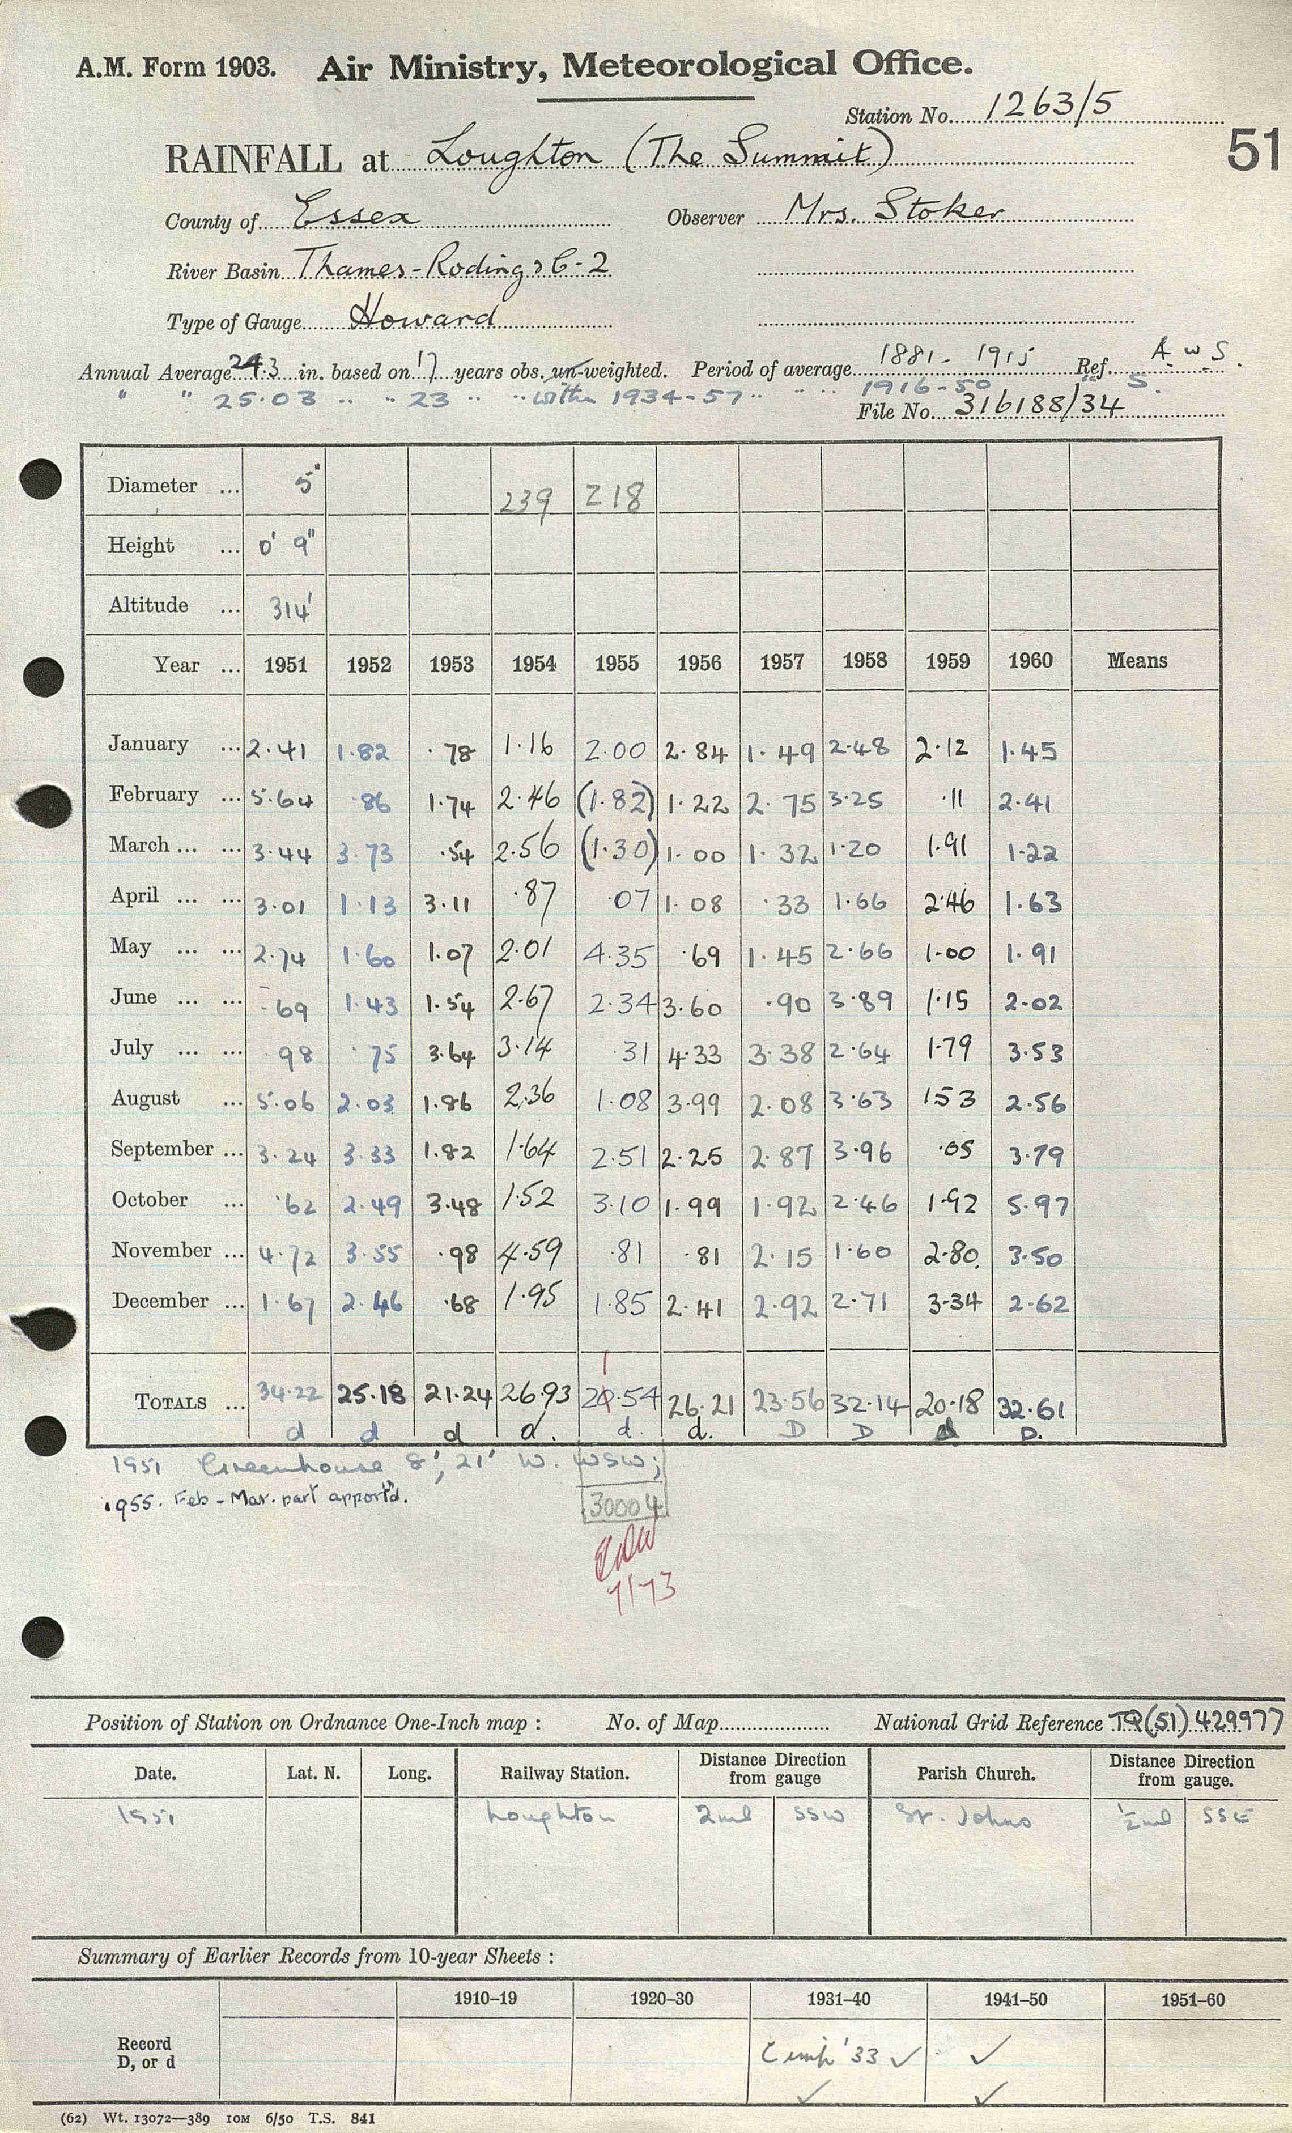 A.M. Form 1903. Air Ministry, Meteorological Office.
Station No. 1263/5
51
RAINFALL at Loughton (The Summit)
County of Essex Observer Mrs. Stoker
River Basin Thames-Roding
Type of Gauge Howard
Annual Average 24.3 in. based on 17 years obs. un-weighted. Period of average 1881-1915 Ref. A w S.
" " 25.03 " " 23 " " within 1934-57 " " " 1916-50 " S.
File No. 316188/34
Diameter ... 5" 239 218
Height ... 0' 9"
Altitude ... 314'
Year ... 1951 1952 1953 1954 1955 1956 1957 1958 1959 1960 Means
January ... 2.41 1.82 .78 1.16 2.00 2.84 1.49 2.48 2.12 1.45
February ... 5.64 .86 1.74 2.46 (1.82) 1.22 2.75 3.25 .11 2.41
March ... ... 3.44 3.73 .54 2.56 (1.30) 1.00 1.32 1.20 1.91 1.22
April ... ... 3.01 1.13 3.11 .87 .07 1.08 .33 1.66 2.46 1.63
May ... ... 2.74 1.60 1.07 2.01 4.35 .69 1.45 2.66 1.00 1.91
June ... ... .69 1.43 1.54 2.67 2.34 3.60 .90 3.89 1.15 2.02
July ... ... .98 .75 3.64 3.14 .31 4.33 3.38 2.64 1.79 3.53
August ... 5.06 2.03 1.86 2.36 1.08 3.99 2.08 3.63 1.53 2.56
September ... 3.24 3.33 1.82 1.64 2.51 2.25 2.87 3.96 .05 3.79
October ... .62 2.49 3.48 1.52 3.10 1.99 1.92 2.46 1.92 5.97
November ... 4.72 3.55 .98 4.59 .81 .81 2.15 1.60 2.80 3.50
December ... 1.67 2.46 .68 1.95 1.85 2.41 2.92 2.71 3.34 2.62
1
TOTALS ... 34.22 25.18 21.24 26.93 20.54 26.21 23.56 32.14 20.18 32.61
d d d d. d. d. D D d D.
1951 Greenhouse 8', 21' W. WSW;
1955. Feb - Mar. part apport'd.
30004
7/73
Position of Station on Ordnance One-Inch map : No. of Map National Grid Reference TQ(51) 429977
Date. Lat. N. Long. Railway Station. Distance Direction from gauge Parish Church. Distance Direction from gauge.
1951 Loughton 2ml SSW St. Johns ½ml SSE
Summary of Earlier Records from 10-year Sheets :
1910–19 1920–30 1931–40 1941–50 1951–60
Record D, or d '33 ✓ ✓
✓ ✓
(62) Wt. 13072—389 10M 6/50 T.S. 841